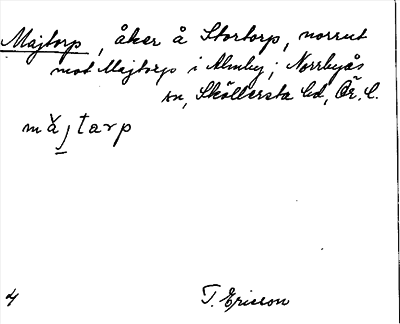 Majtorp, åker å Stortorp, norrut
mot Majtorp i Almby; Norrbyås
sn, Sköllersta hd, Ör. l.
măj tarp
4 T. Ericson